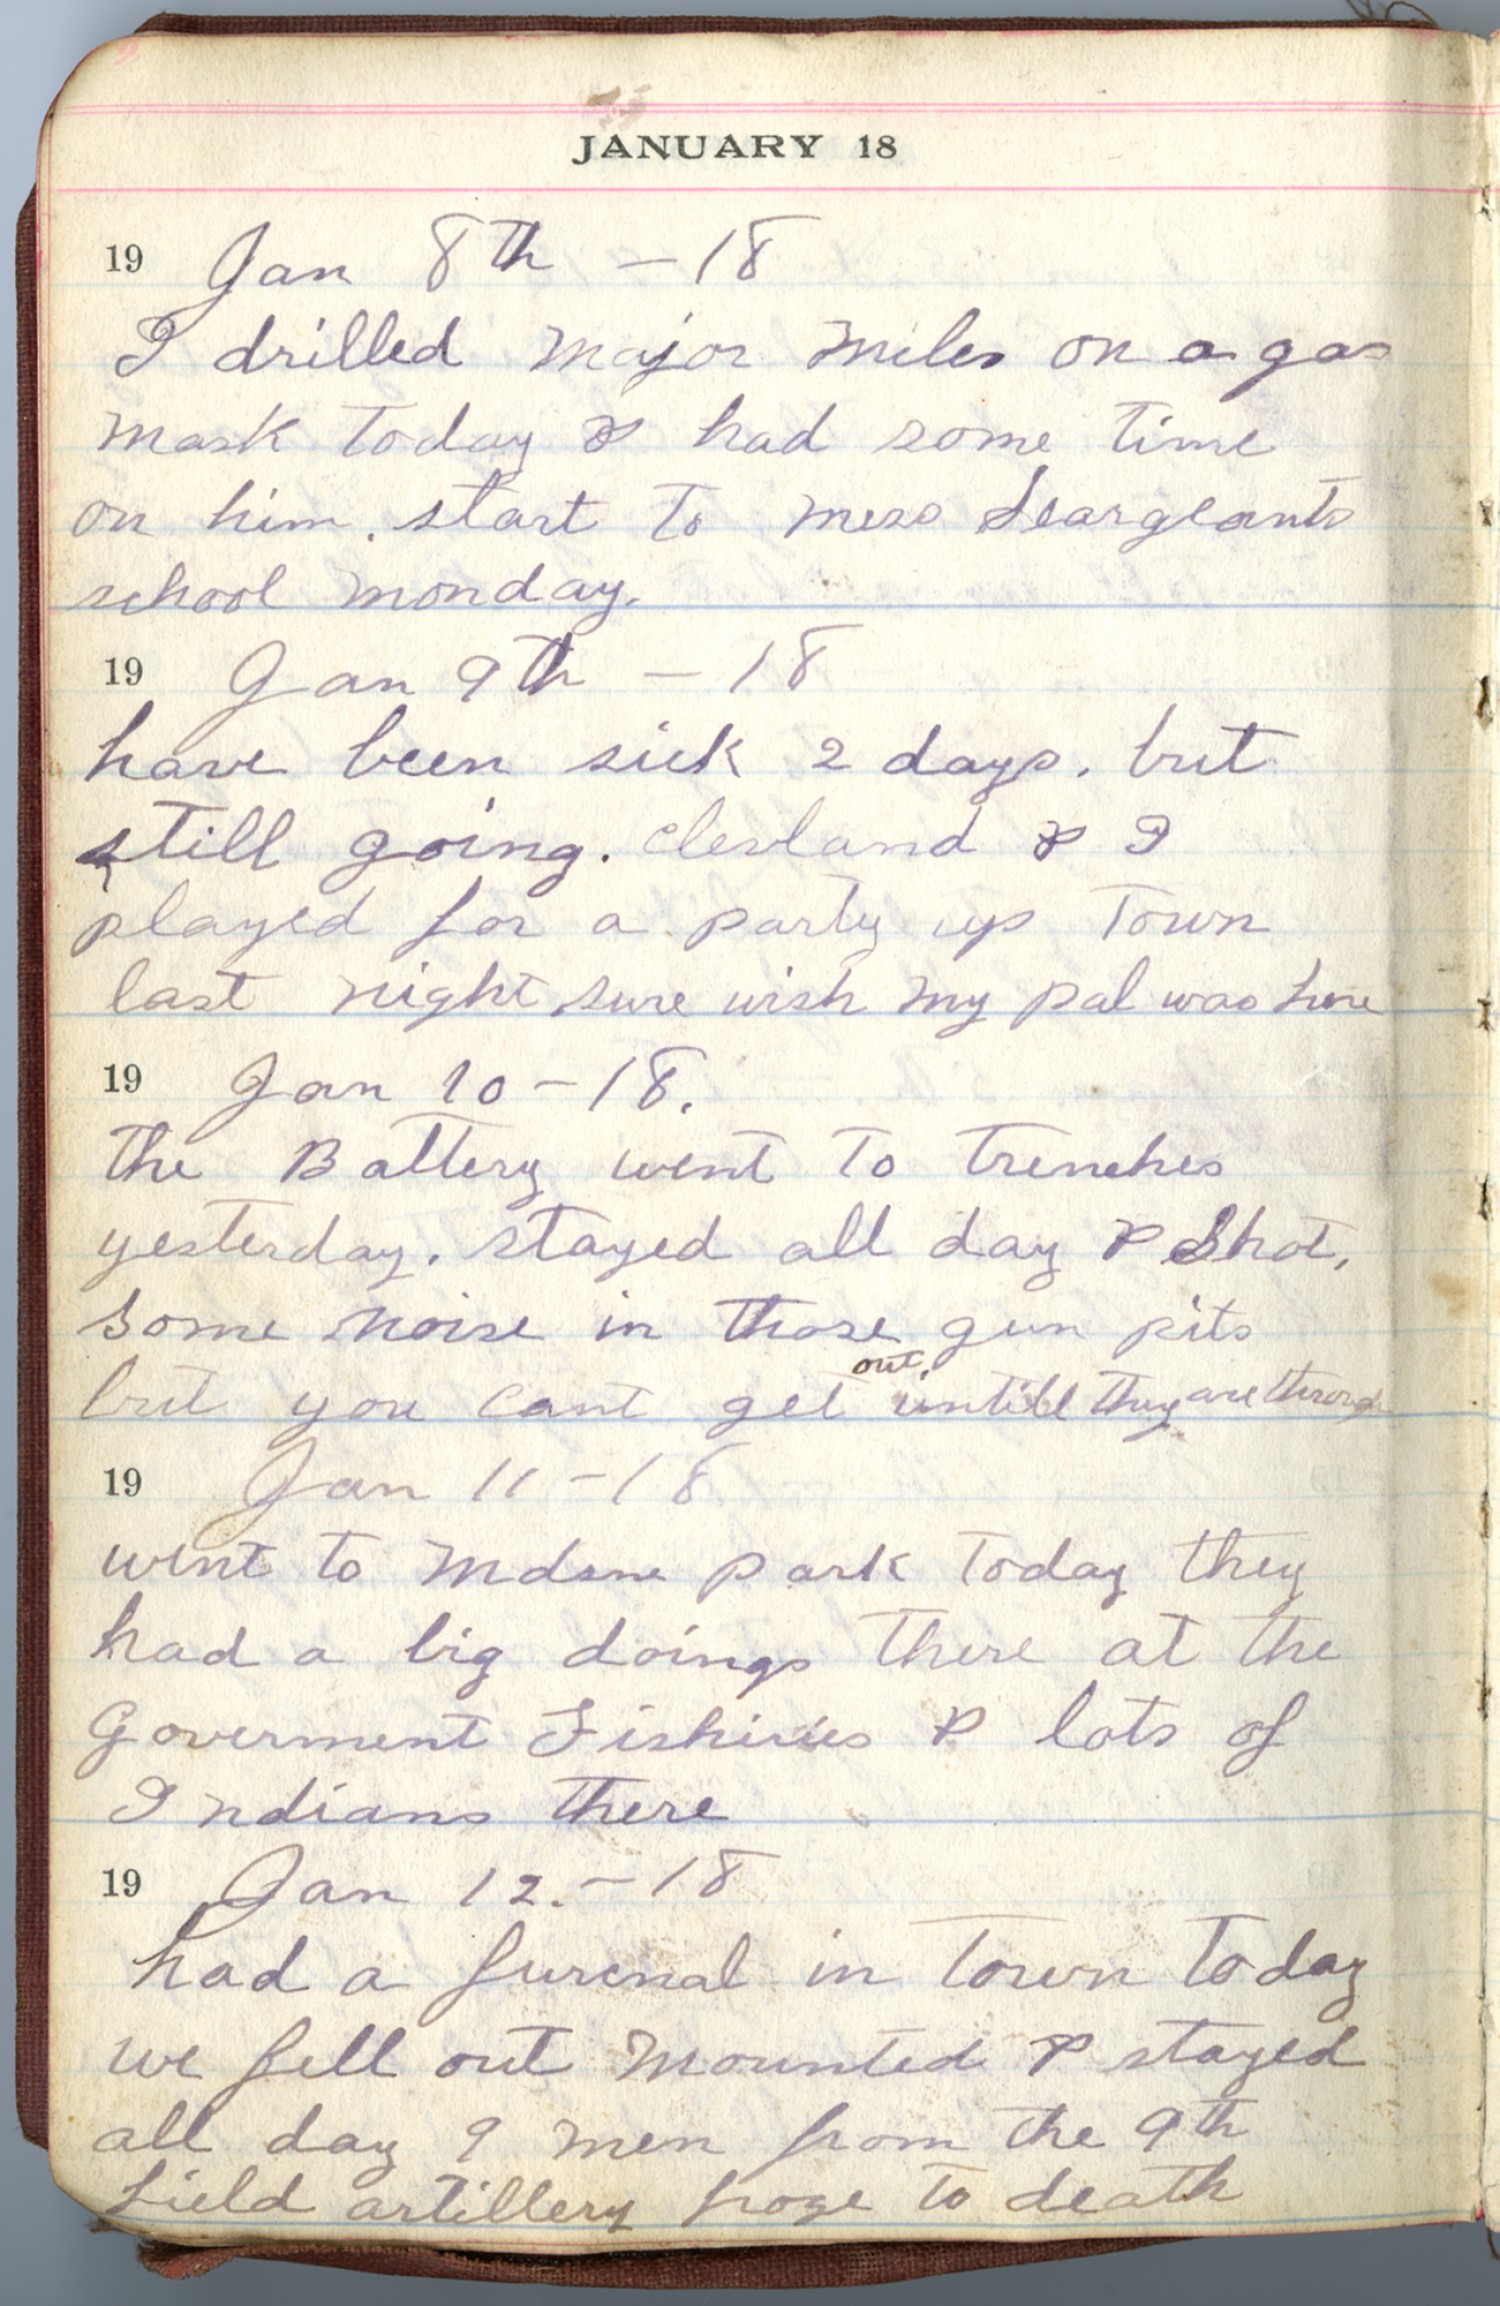 JANUARY 18
19 Jan 8th - 18
I drilled major miles on a gas
mask today & had some time
on him. start to mess Seargeants
school monday.
19 Jan 9th - 18
have been sick 2 days. but
still going. Clevland & I
played for a party up town
last night sure wish my pal was here
19 Jan 10 - 18.
the Battery went to trenches
yesterday. stayed all day & Shot.
Some noise in those gun pits
but you cant get out. untill they are through
19 Jan 11 - 18
went to park today they
had a big doings there at the
Goverment Fisheries & lots of
Indians there
19 Jan 12. - 18
had a furenal in town today
we fell out mounted & stayed
all day 9 men from the 9th
field artillery froze to death